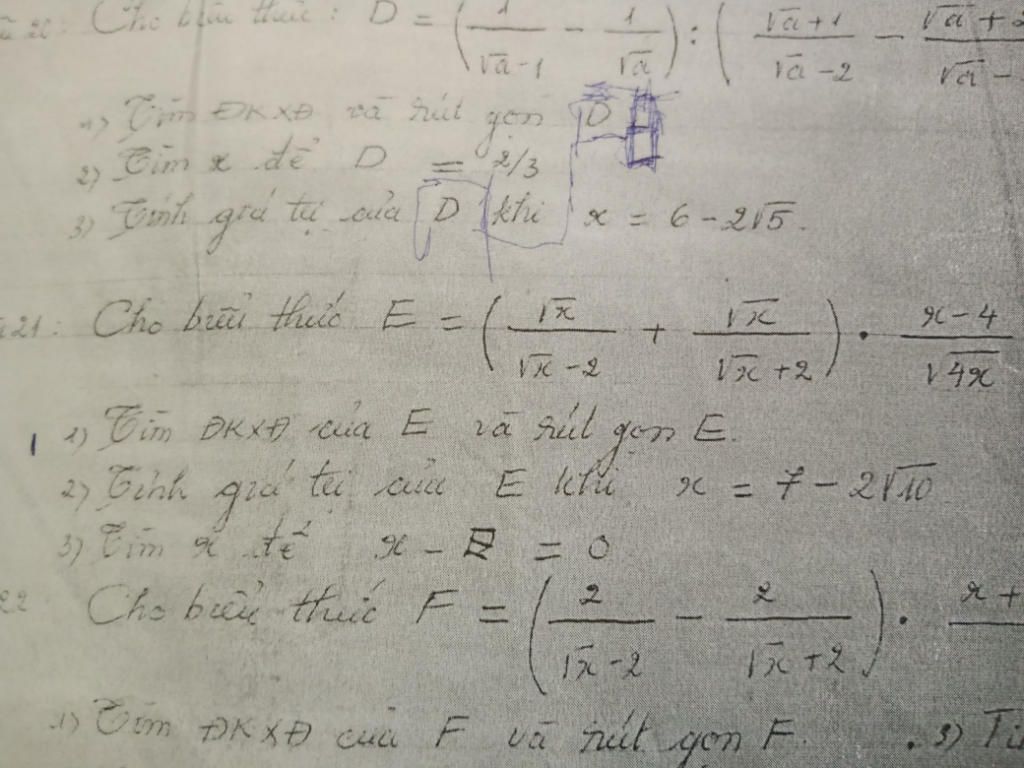 20: Cho biểu thức: D = (1/(√a-1) - 1/√a) : ((√a+1)/(√a-2) - (√a+2)/(√a-
1) Tìm ĐKXĐ và rút gọn D
2) Tìm x để D = 2/3
3) Tính giá tị của D khi x = 6 - 2√5.
21: Cho biểu thức E = (√x/(√x-2) + √x/(√x+2)) . (x-4)/√4x
1) Tìm ĐKXĐ của E và rút gọn E.
2) Tính giá tị của E khi x = 7 - 2√10
3) Tìm x để x - E = 0
22 Cho biểu thức F = (2/(√x-2) - 2/(√x+2)) . x+
1) Tìm ĐKXĐ của F và rút gọn F. . 3) Tì